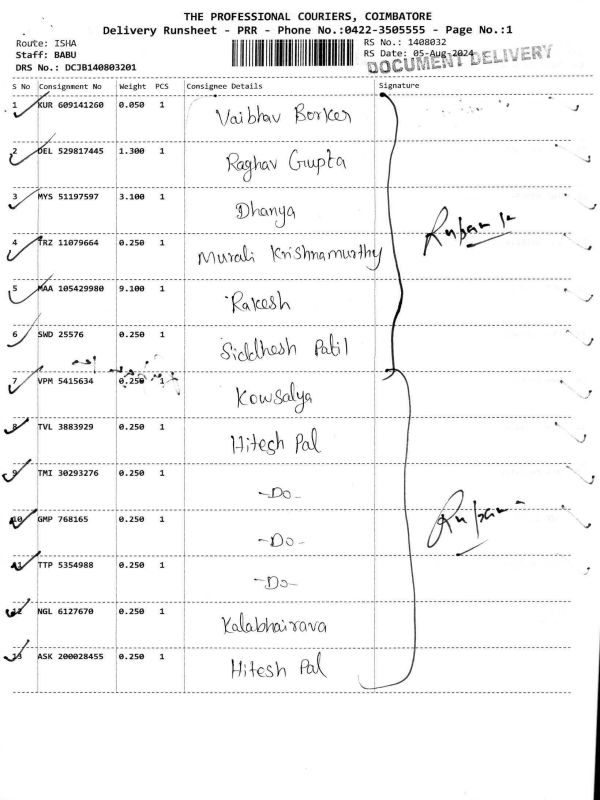 THE PROFESSIONAL COURIERS, COIMBATORE
Delivery Runsheet - PRR - Phone No.:0422-3505555 - Page No.:1
Route: ISHA
Staff: BABU
DRS No.: DCJB140803201
RS No.: 1408032
RS Date: 05-Aug-2024
DOCUMENT DELIVERY
S No Consignment No Weight PCS Consignee Details Signature
1 KUR 609141260 0.050 1 Vaibhav Borker
2 DEL 529817445 1.300 1 Raghav Gupta
3 MYS 51197597 3.100 1 Dhanya
4 TRZ 11079664 0.250 1 Murali Krishnamurthy
5 MAA 105429980 9.100 1 Rakesh
6 SWD 25576 0.250 1 Siddhesh Patil
7 VPM 5415634 0.250 1 Kowsalya
8 TVL 3883929 0.250 1 Hitesh Pal
9 TMI 30293276 0.250 1 -Do-
10 GMP 768165 0.250 1 -Do-
11 TTP 5354988 0.250 1 -Do-
12 NGL 6127670 0.250 1 Kalabhairava
13 ASK 200028455 0.250 1 Hitesh Pal